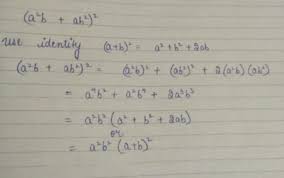 (a²b + ab²)²
use identity (a+b)² = a² + b² + 2ab
(a²b + ab²)² = (a²b)² + (ab²)² + 2(a²b)(ab²)
= a⁴b² + a²b⁴ + 2a³b³
= a²b² (a² + b² + 2ab)
or
= a²b² (a+b)²